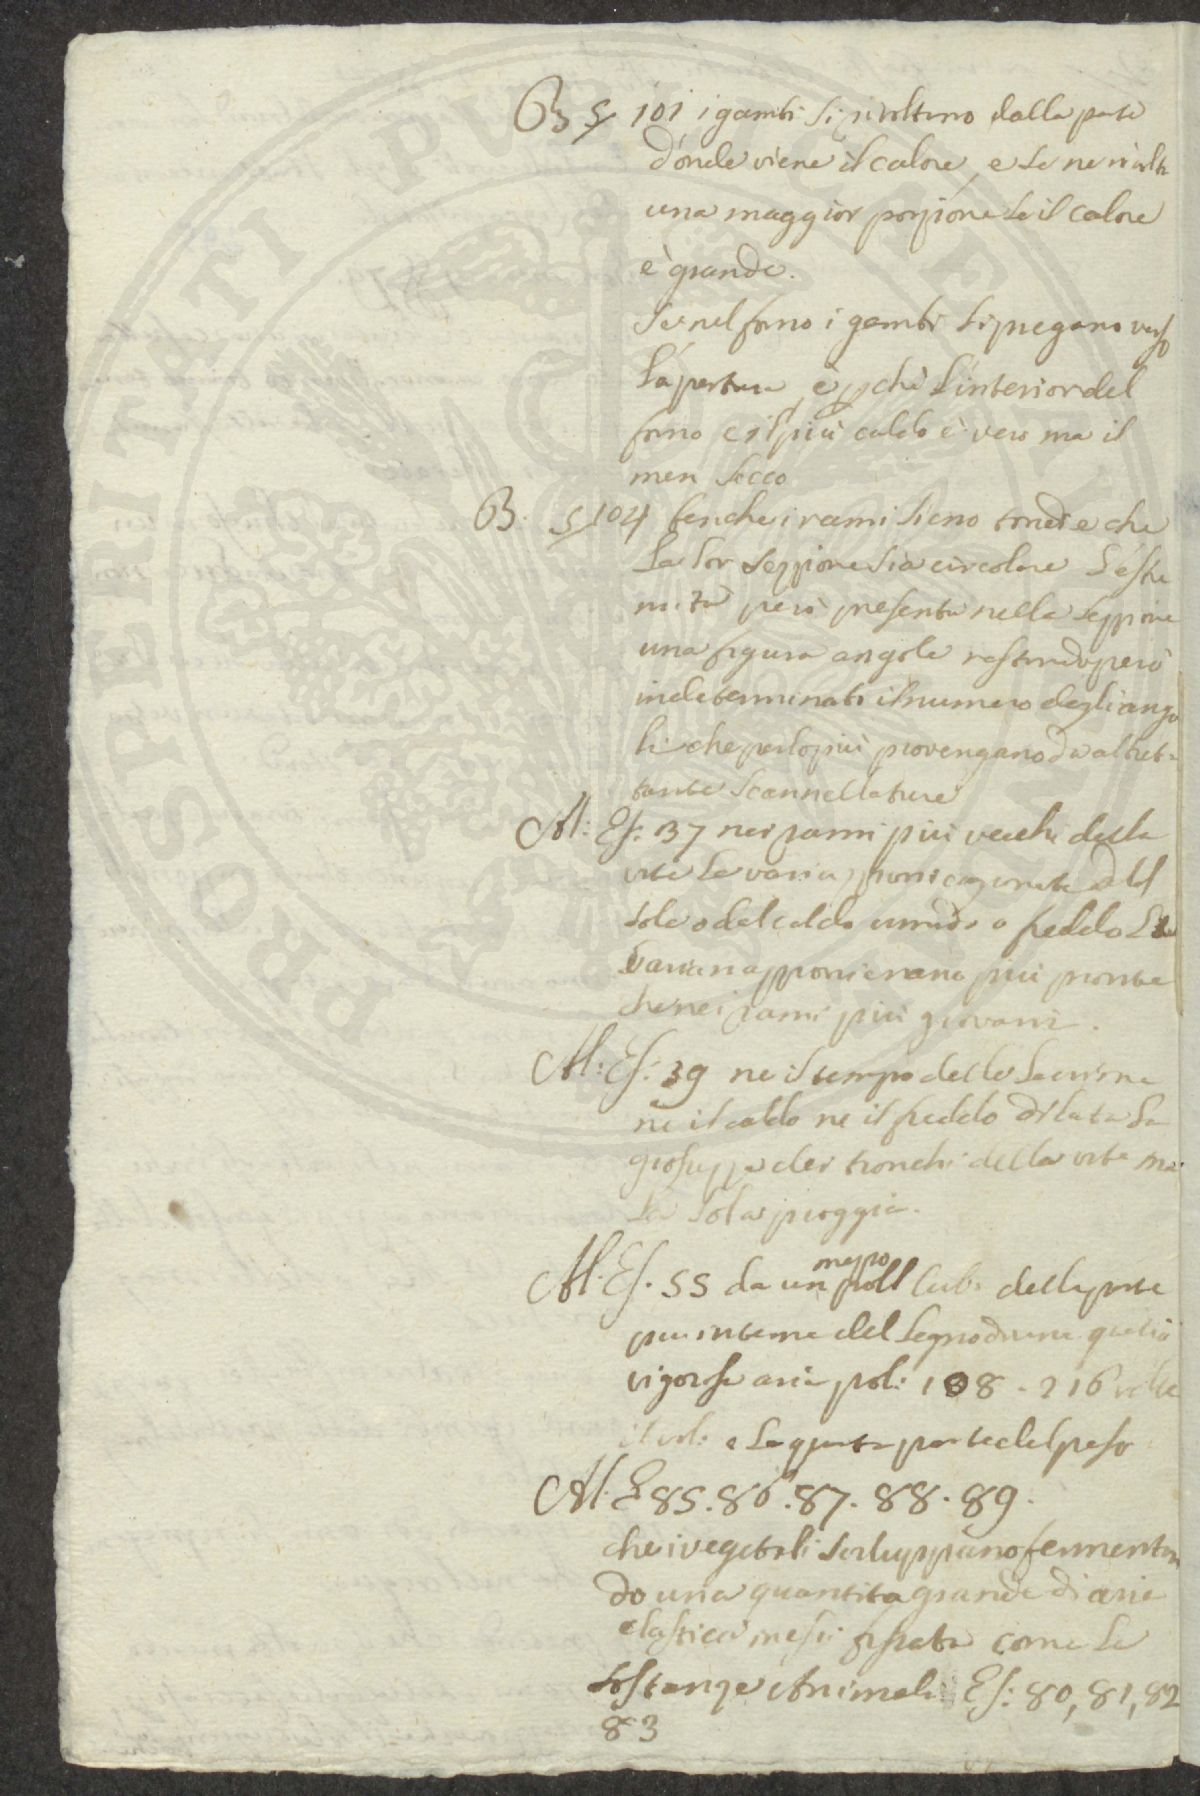 B § 101 i gambi si rivoltano dalla parte
d'onde viene il calore, e se ne rivolta
una maggior porzione se il calore
è grande.
Se nel forno i gambi si piegano verso
l'apertura, è pchè l'interior del
forno è il più caldo è vero ma il
men secco
B. § 104 benche i rami sieno tondi e che
la lor sezzione sia circolare l'estre
mità però presenta nella sezzione
una figura angole restando però
indeterminato il numero degli ango
li che per lo più provengano da altret=
tante scannellature
Al: Es: 37 nei rami più vecchi della
vite le variazzioni cagionate dal
sole o dal caldo umido o freddo
variazzioni erano più pronte
che nei rami più giovani.
Al: Es: 39 ne il tempo delle lacrime
ne il caldo ne il freddo dilata la
grossezza dei tronchi della vite ma
la sola pioggia.
Al. Es. 55 da un mezzo poll cub. della parte
piu interna del legno d'una quercia
vigorosa aria pol: 108 . 216 volte
il vol: e la quarta parte del peso
Al. E 85. 86. 87. 88. 89.
che i vegetabili sviluppano fermentan
do una quantità grande di aria
elastica in essi fissata come le
sostanze Animali Es: 80, 81, 82
83
PROSPERITATI PVBLICAE AVGENDAE